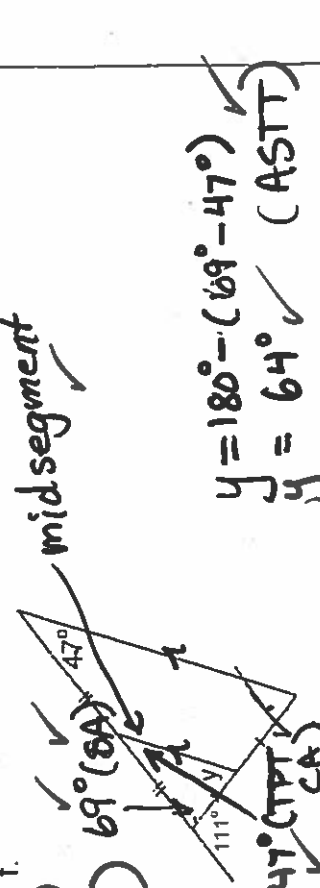 t.
midsegment
69° (SA)
47°
x
x
y
111°
47° (TPT
CA)
y = 180° - (69° - 47°)
y = 64° (ASTT)